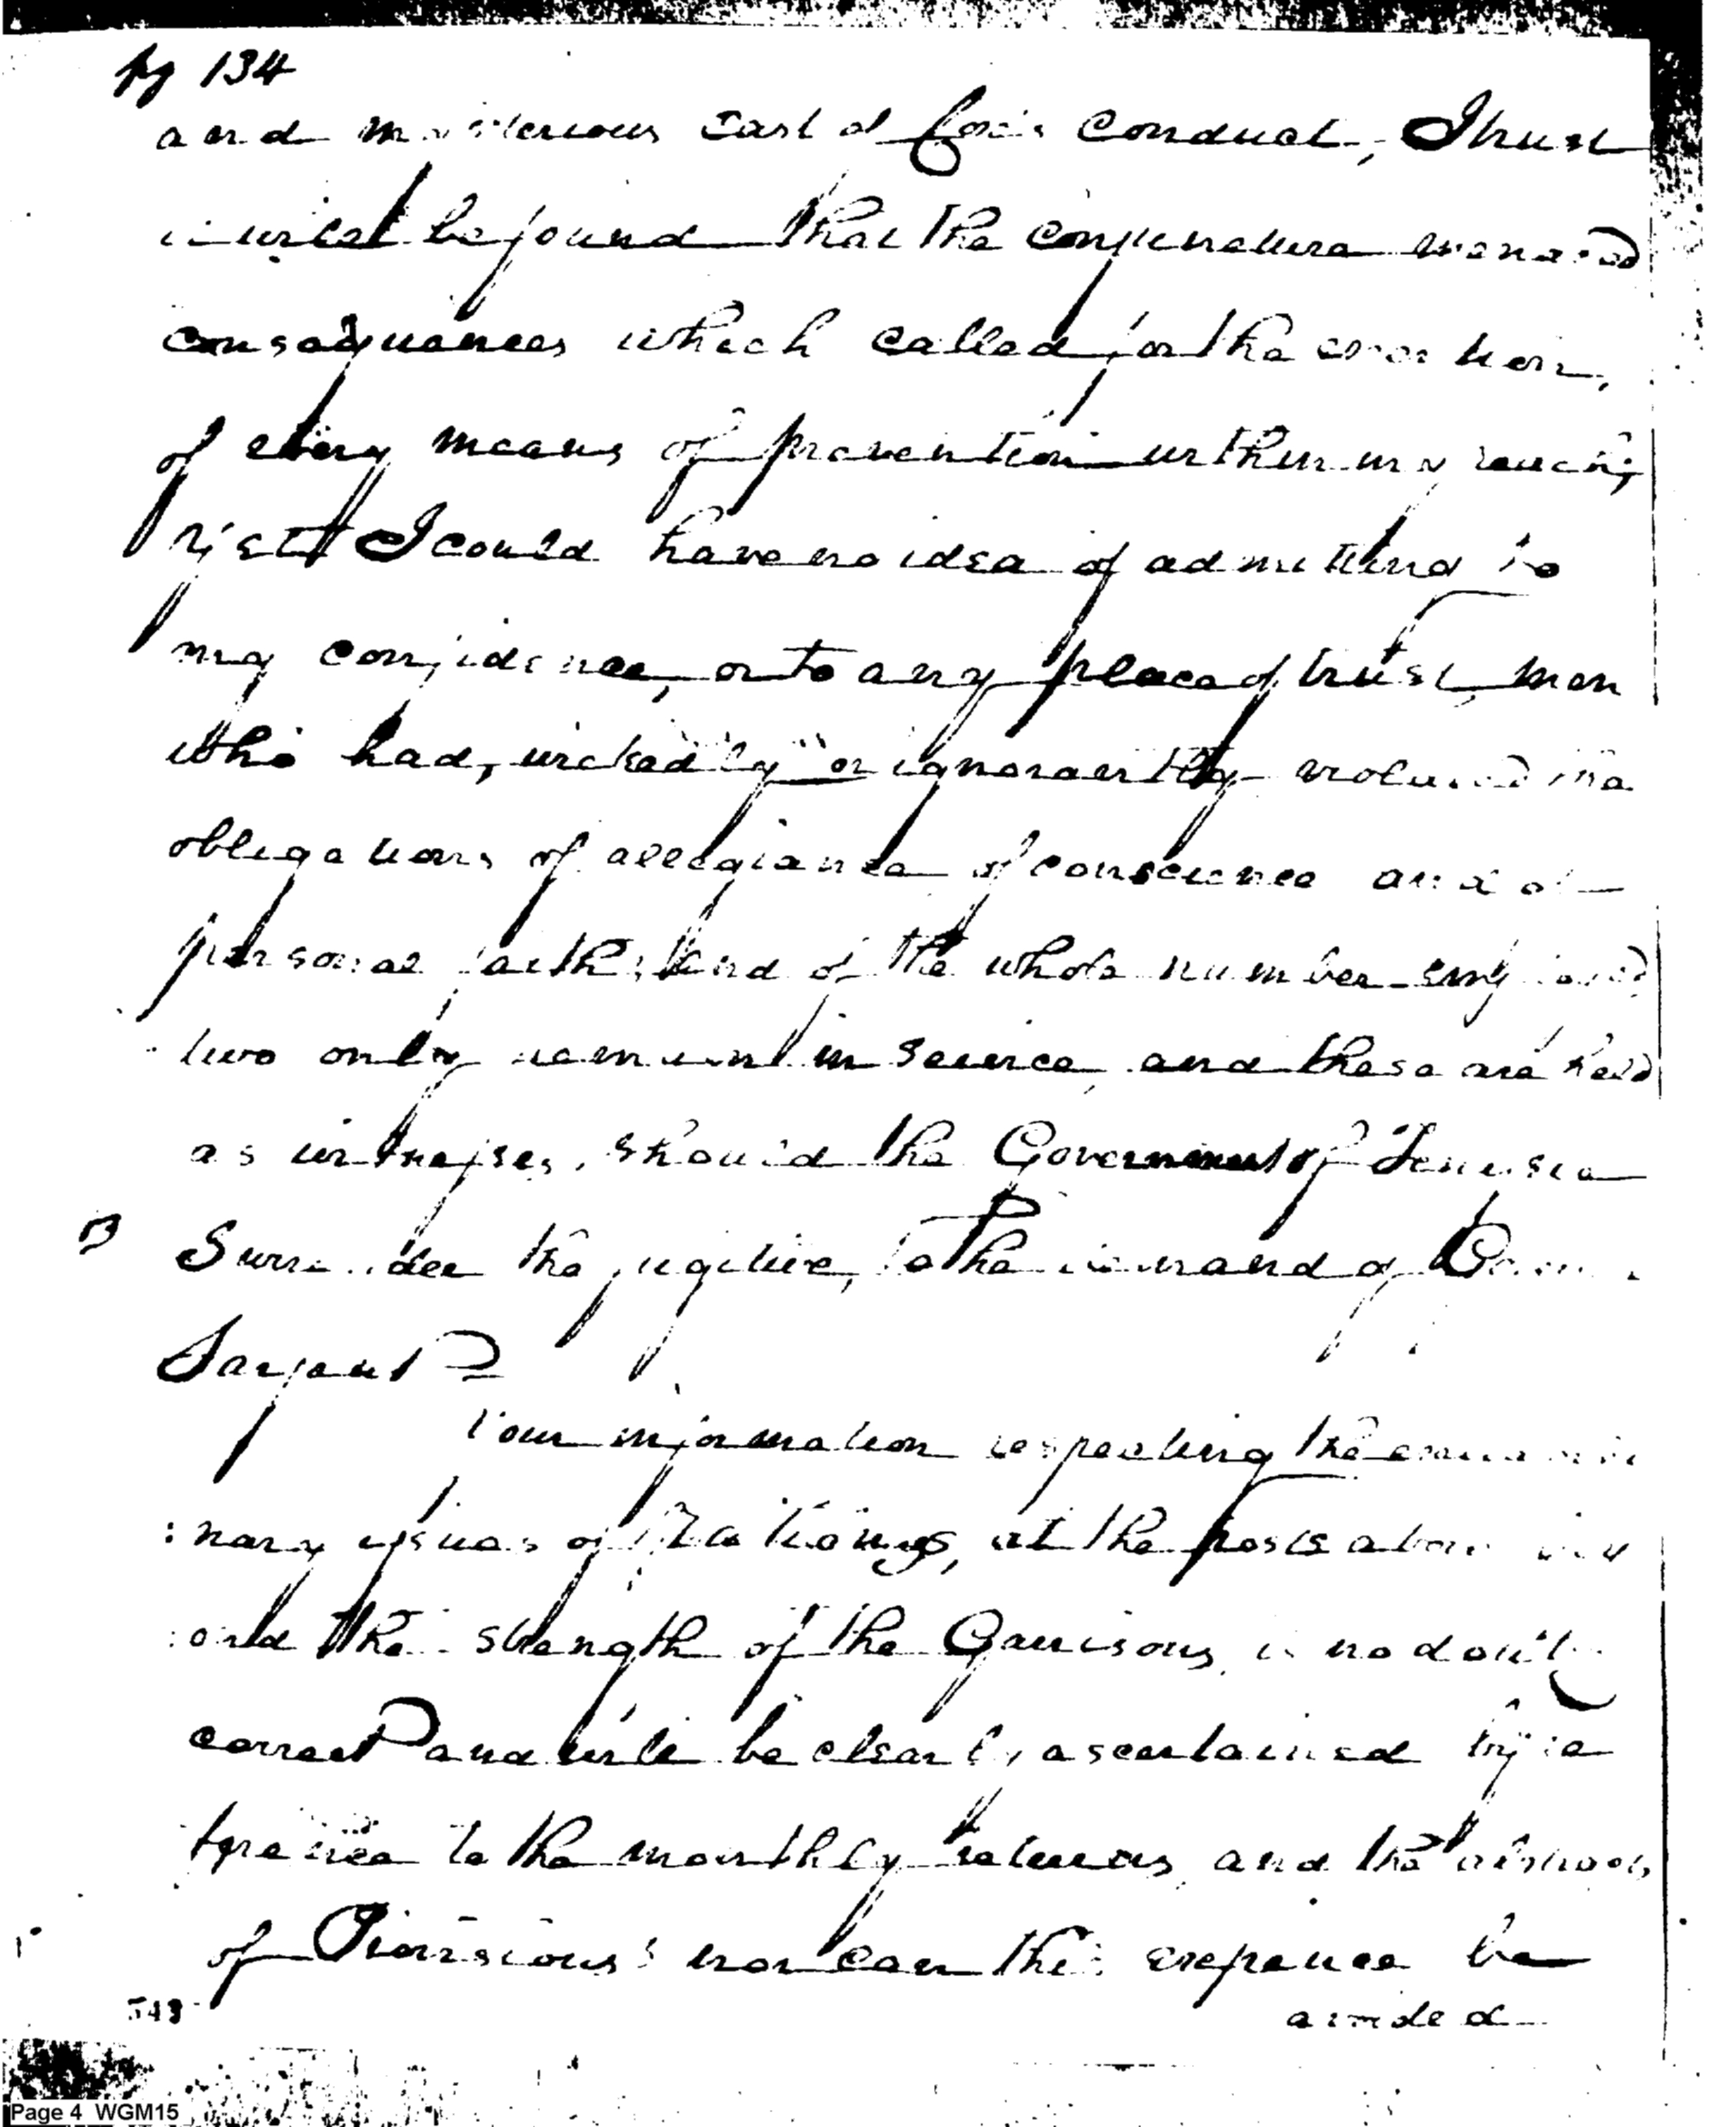 pg 134
and mysterious cast of his conduct, I trust
it will be found that the conjuncture menaced
consequences which called for the exertion,
of every means of prevention within my reach;
yet I could have no idea of admitting to
my confidence, or to any place of trust, men
who had, wickedly or ignorantly violated the
obligations of allegiance of conscience and of
personal faith; and of the whole number employed
two only remain in service, and these are held
as witnesses, should the Government of
Surrender the fugitive, to the demand of
Sarjent
Your information respecting the
:nary issues of Rations, at the posts above
and the strength of the Garrisons, is no doubt
correct and will be clearly ascertained by re
ference to the monthly returns, and the abstracts
of Provisions: nor can the expence be
avoided
543
Page 4 WGM15